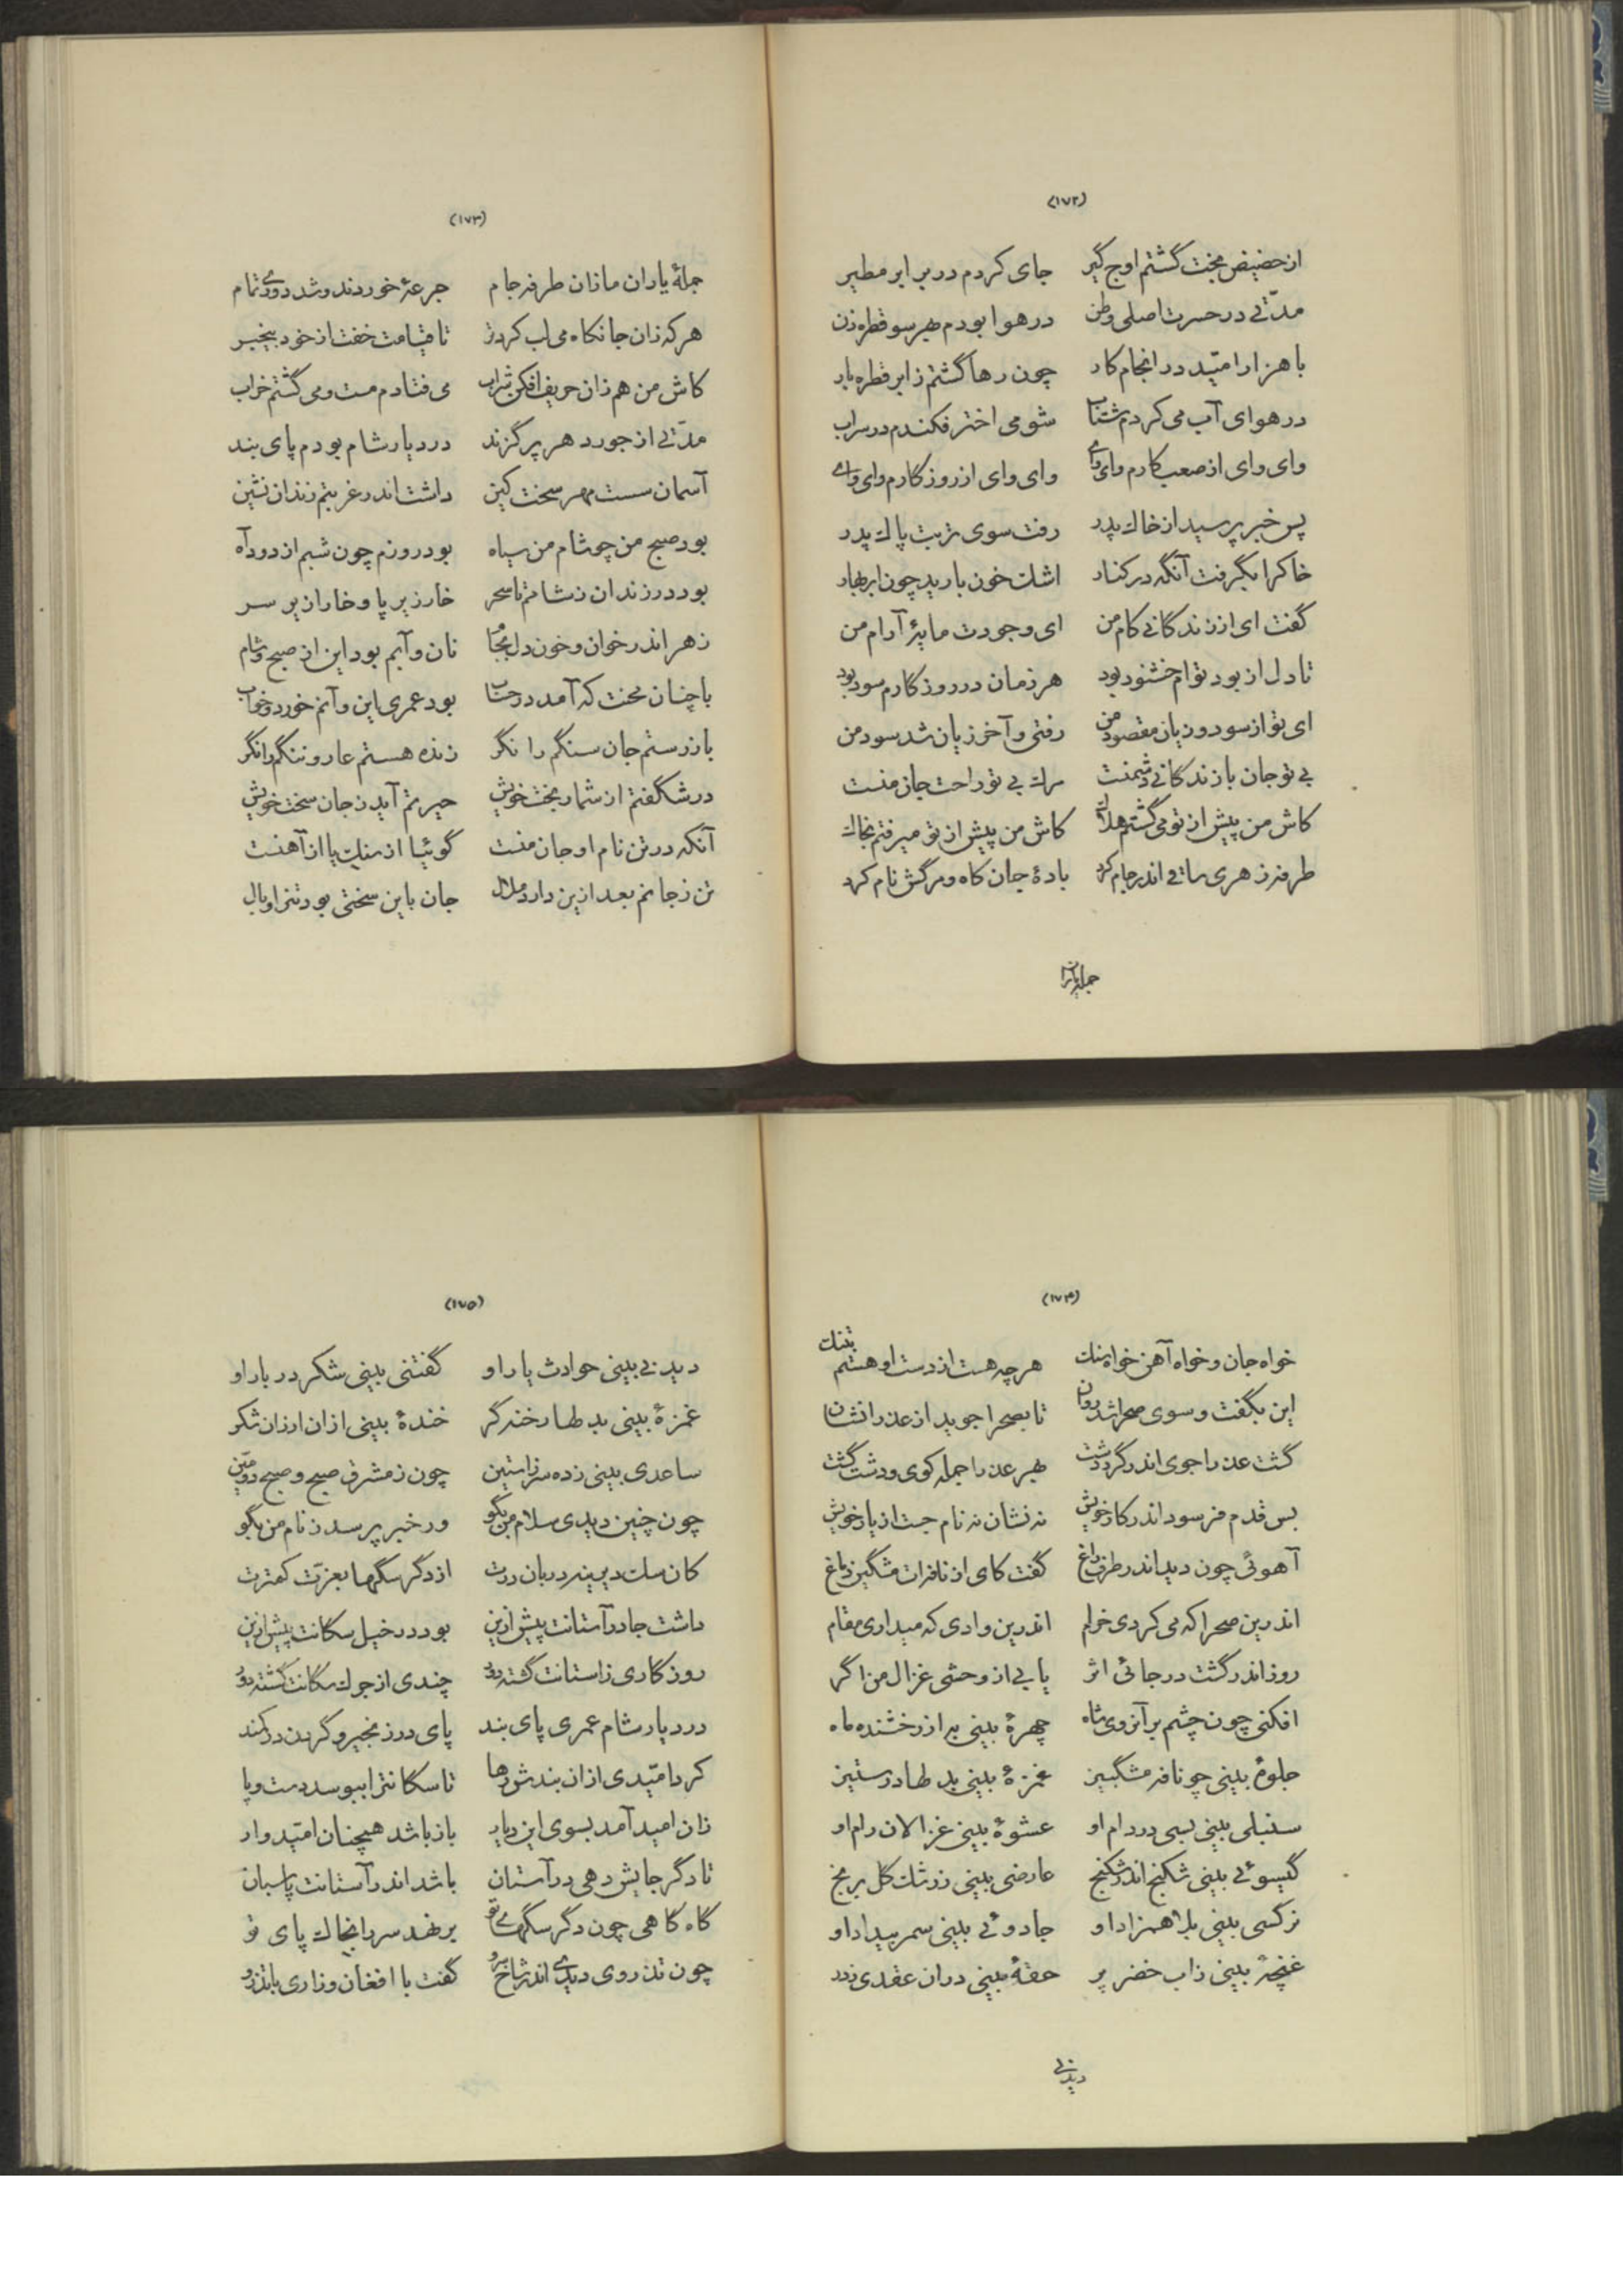 (۱۷۲)
از حضیض محنت گشتم اوج گیر جای کردم در بر ابر مطیر
مدّتی در حسرت اصلی وطن در هوا بودم بهر سو قطره زن
با هزار امّید در انجام کار چون رها گشتم ز ابر قطره بار
در هوای آب می کردم شتاب شومی اختر فکندم در سراب
وای وای از صعب کارم وای وای وای وای از روزگارم وای وای
پس خبر پرسید از خاك پدر رفت سوی تربت پاك پدر
خاکرا بگرفت آنگه در کنار اشك خون بارید چون ابر بهار
گفت ای از زندگانی کام من ای وجودت مایۀ آرام من
تا دل از بود توام خشنود بود هر زمان در روزگارم سود بود
ای تو از سود و زیان مقصود من رفتی و آخر زیان شد سود من
بی تو جان با زندگانی دشمنست مرك بی تو راحت جان منست
کاش من پیش از تو می گشتم هلاك کاش من پیش از تو میرفتم بخاك
طرفه زهری ساقی اندر جام کرد بادۀ جان کاه و مرگش نام کرد
جمله یاران
(۱۷۳)
جملۀ یاران ما زان طرفه جام جرعۀ خوردند و شد دوری تمام
هر که زان جانکاه می لب کرد تر تا قیامت خفت از خود بیخبر
کاش من هم زان حریف افکن شراب می فتادم مست و می گشتم خراب
مدّتی از جور دهر پر گزند در دیار شام بودم پای بند
آسمان سست مهر سخت کین داشت اندر غربتم زندان نشین
بود صبح من چو شام من سیاه بود روزم چون شبم از دود آه
بود در زندان ز شامم تا سحر خار زیر پا و خاران بر سر
زهر اندر خوان و خون دل بجام نان و آبم بود این از صبح و شام
با چنان محنت که آمد در حساب بود عمری این و آنم خورد و خواب
باز رستم جان سنگم را نگر زنده هستم عار و ننگم را نگر
در شگفتم از شمار بخت خویش حیرتم آید ز جان سخت خویش
آنکه در تن نام او جان منست گوئیا از سنك یا از آهنست
تن ز جانم بعد ازین دارد ملال جان باین سختی بود تنرا وبال
(۱۷۴)
خواه جان و خواه آهن خواه سنك هر چه هست از دست او هستم بتنك
این بگفت و سوی صحرا شد روان تا بصحرا جوید از عذرا نشان
گشت عذرا جوی اندر گرد دشت بهر عذرا جمله کوی و دشت گشت
بس قدم فرسود اندر کار خویش نه نشان نه نام جست از یار خویش
آهوئی چون دید اندر طرف راغ گفت کای از نافه ات مشگین دماغ
اندرین صحرا که می کردی خرام اندرین وادی که میداری مقام
روز اندر گشت در جائی اثر یابی از وحشی غزال من اگر
افکنی چون چشم بر آنروی ماه چهرۀ بینی به از رخشنده ماه
جلوۀ بینی چو نافه مشگبیز غمزۀ بینی بدلها در ستیز
سنبلی بینی بسی در دام او عشوۀ بینی غزالان رام او
گیسوئی بینی شکنج اندر شکنج عارضی بینی ز رشك گل برنج
نرگسی بینی بلا همزاد او جادوئی بینی سمر بیداد او
غنچۀ بینی ز اب خضر پر حقۀ بینی در ان عقدی ز در
دیدنی
(۱۷۵)
دیدنی بینی حوادث یار او گفتنی بینی شکر دربار او
غمزۀ بینی بدلها رخنه گر خندۀ بینی ازان ارزان شکر
ساعدی بینی زده سر ز استین چون ز مشرق صبح و صبح دومّین
چون چنین دیدی سلام من بگو ور خبر پرسد ز نام من بگو
کان سك دیرینه دربان درت از دگر سگها بعزّت کمترت
داشت جا در آستانت پیش ازین بود در خیل سگانت پیش ازین
روزگاری ز استانت گشته دور چندی از جرك سگانت گشته دور
در دیار شام عمری پای بند پای در زنجیر و گردن در کمند
کرد امّیدی ازان بندش رها تا سگانترا ببوسد دست و پا
زان امید آمد بسوی این دیار باز باشد همچنان امّیدوار
تا دگر جایش دهی در آستان باشد اندر آستانت پاسبان
گاه گاهی چون دگر سگهای تو بر نهد سر را بخاك پای تو
چون تذروی دیدی اندر شاخ سرو گفت با افغان و زاری با تذرو